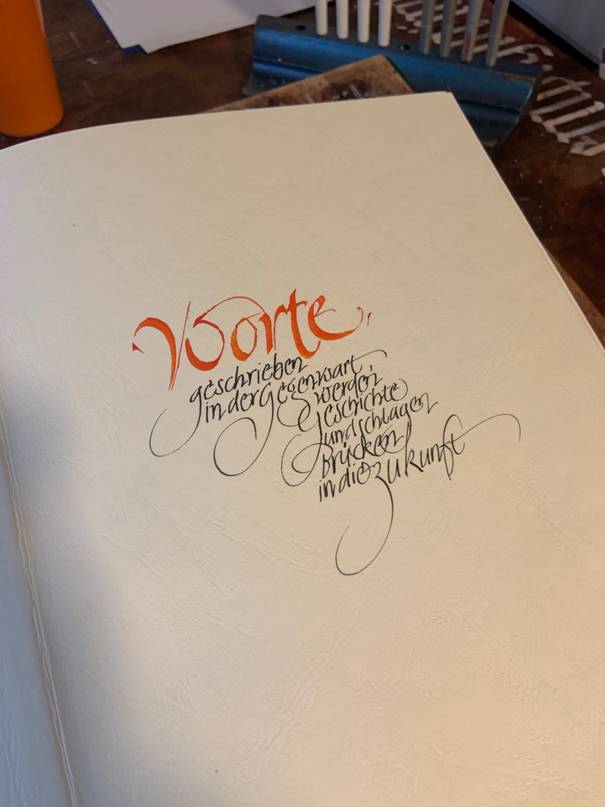 Worte,
geschrieben
in der Gegenwart
werden
Geschichte
und schlagen
Brücken
in die Zukunft